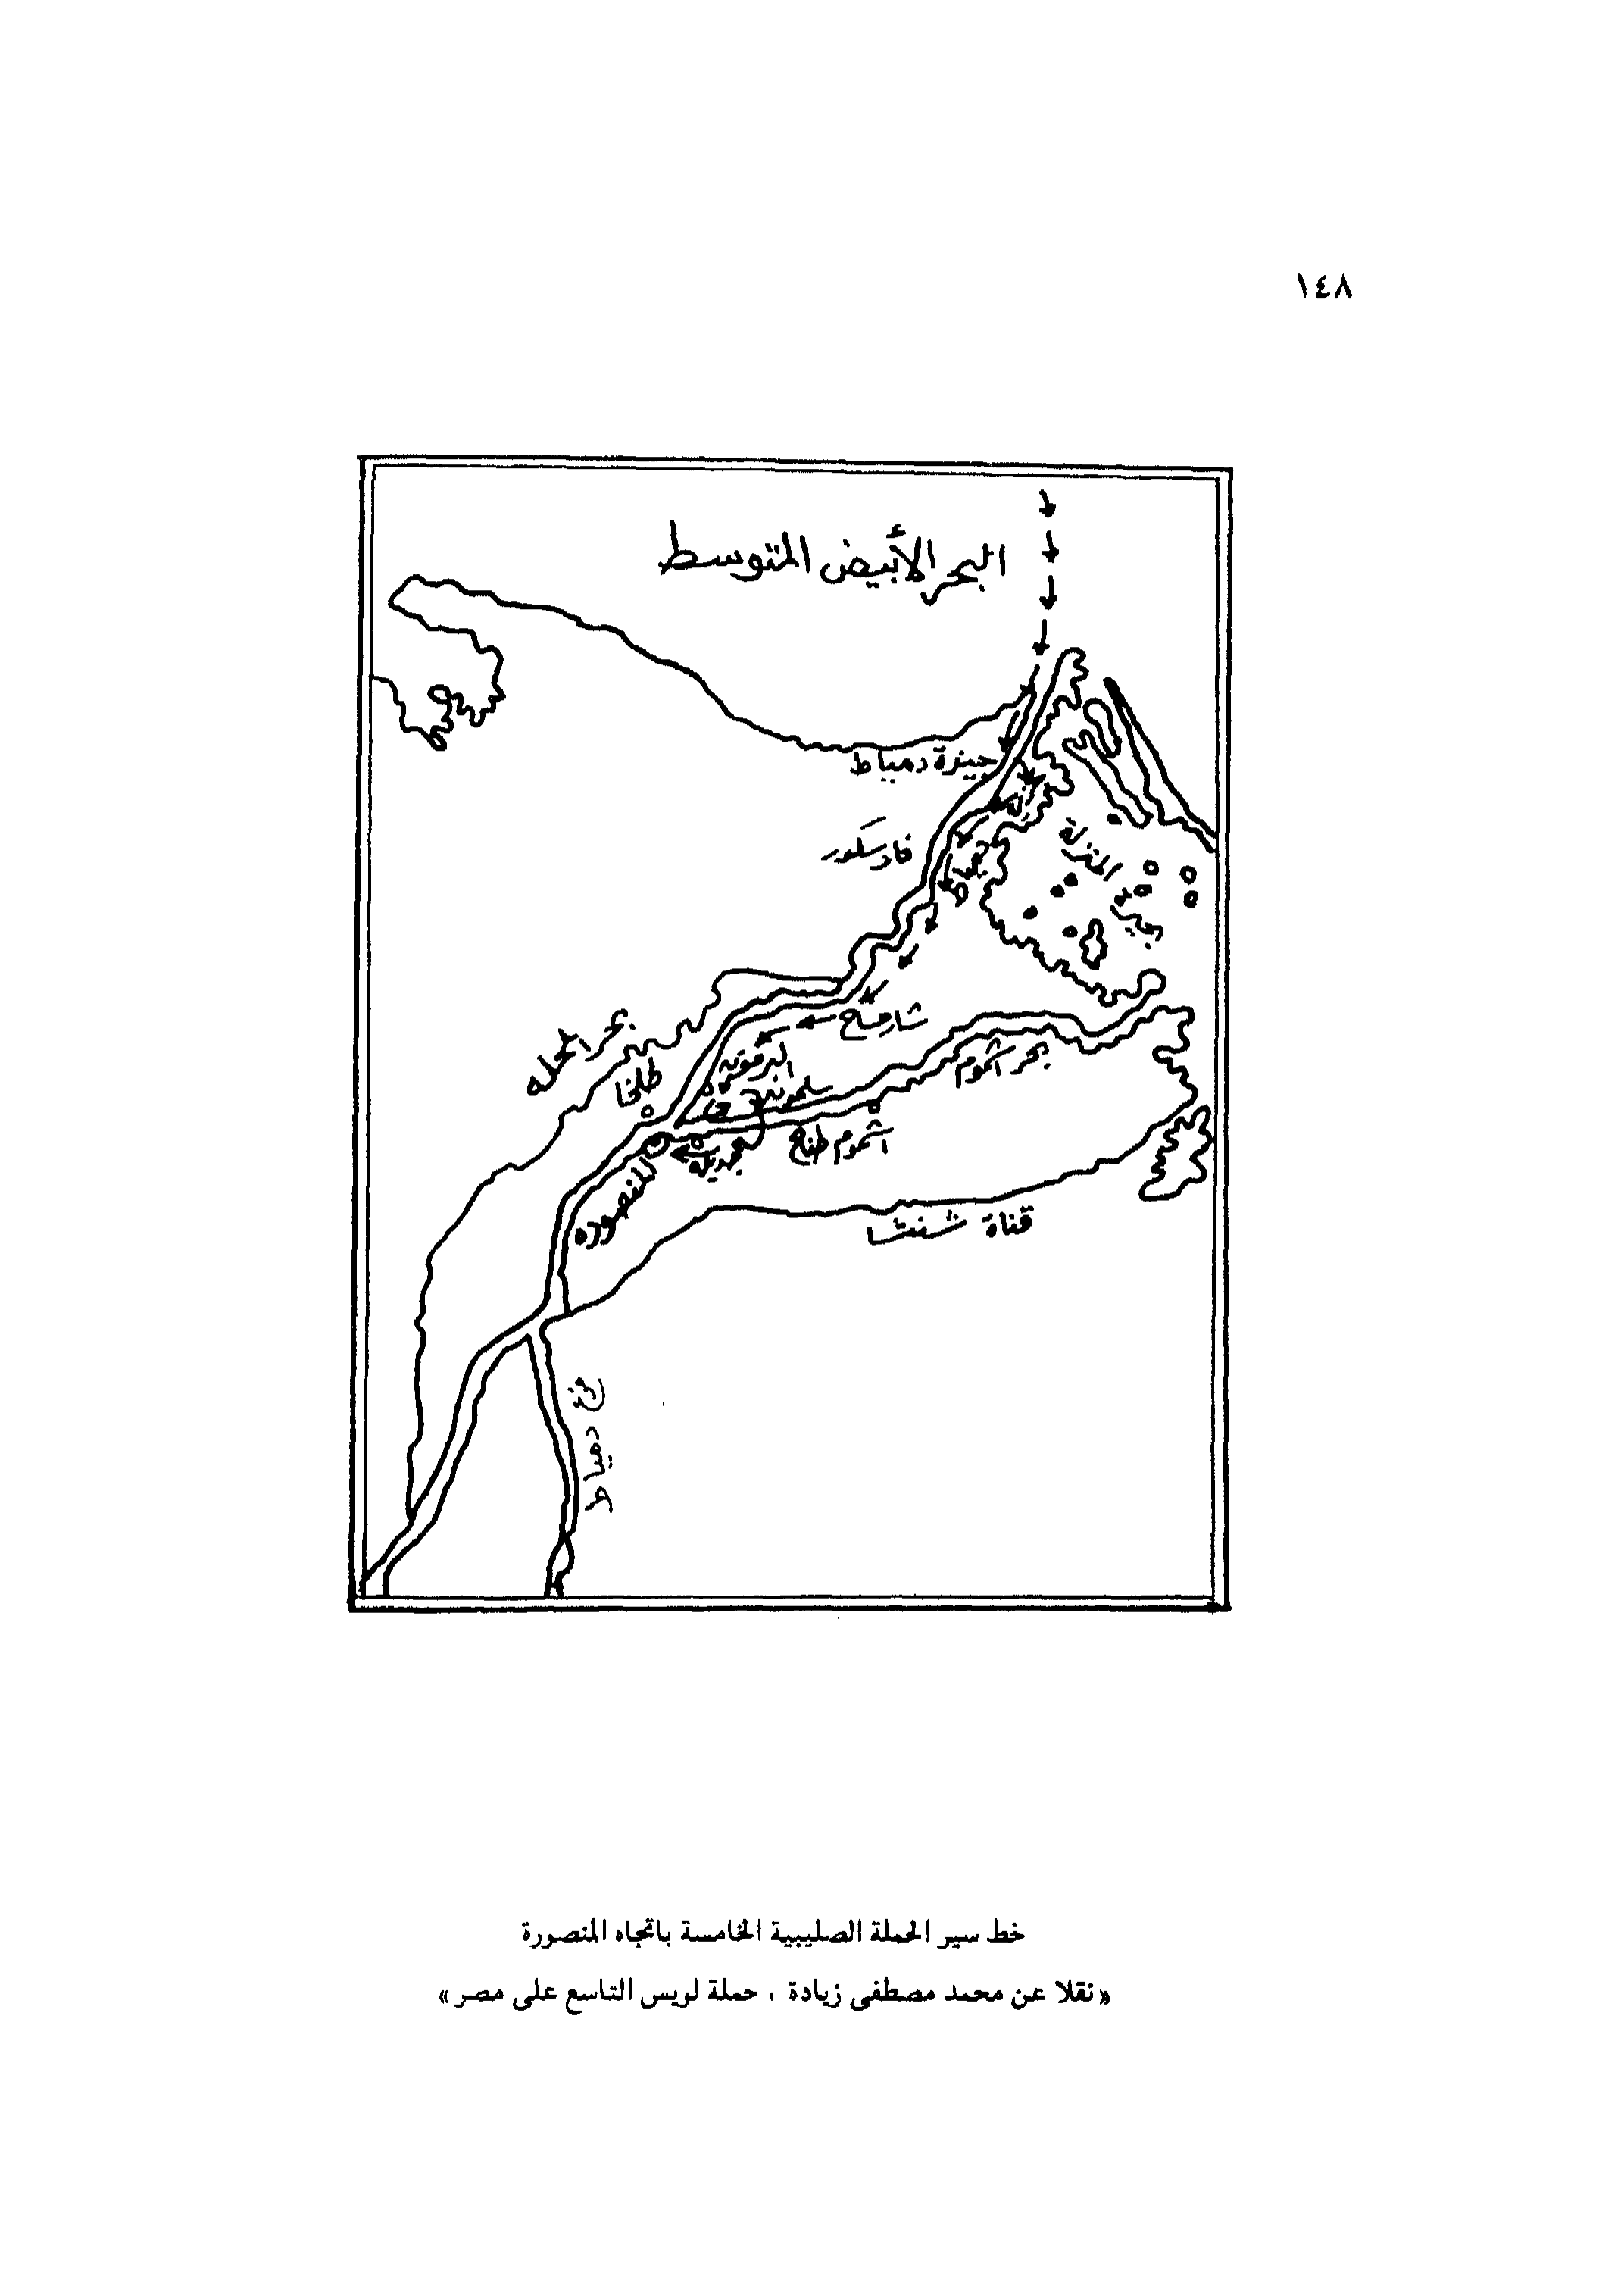 ١٤٨
البحر الأبيض المتوسط
جيزة دمياط
فارسكور
بحيرة المنزلة
شارمساح
بحر المحله
طلخا
البرمون
سلمون
بحر أشموم
أشموم طناح
جديله
المنصوره
قناة شنشا
فرع دمياط
خط سير الحملة الصليبية الخامسة باتجاه المنصورة
« نقلا عن محمد مصطفى زيادة ، حملة لويس التاسع على مصر »